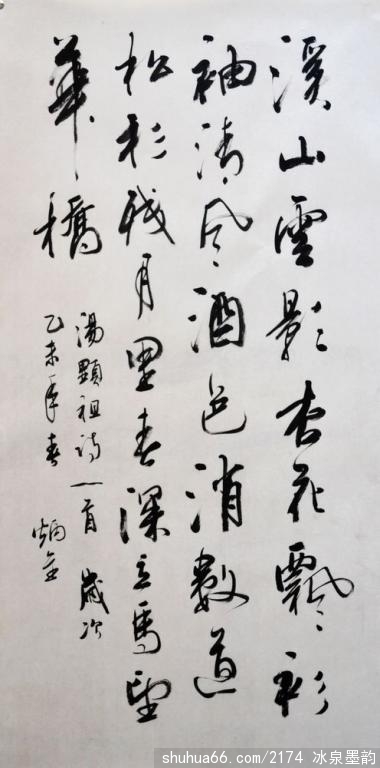 溪山雲影杏花飄衫
袖清風酒色消數道
松杉殘月里春深立馬望
華橋
湯顯祖詩一首 歲次
乙未年春
炳全
shuhua66.com/2174 冰泉墨韵